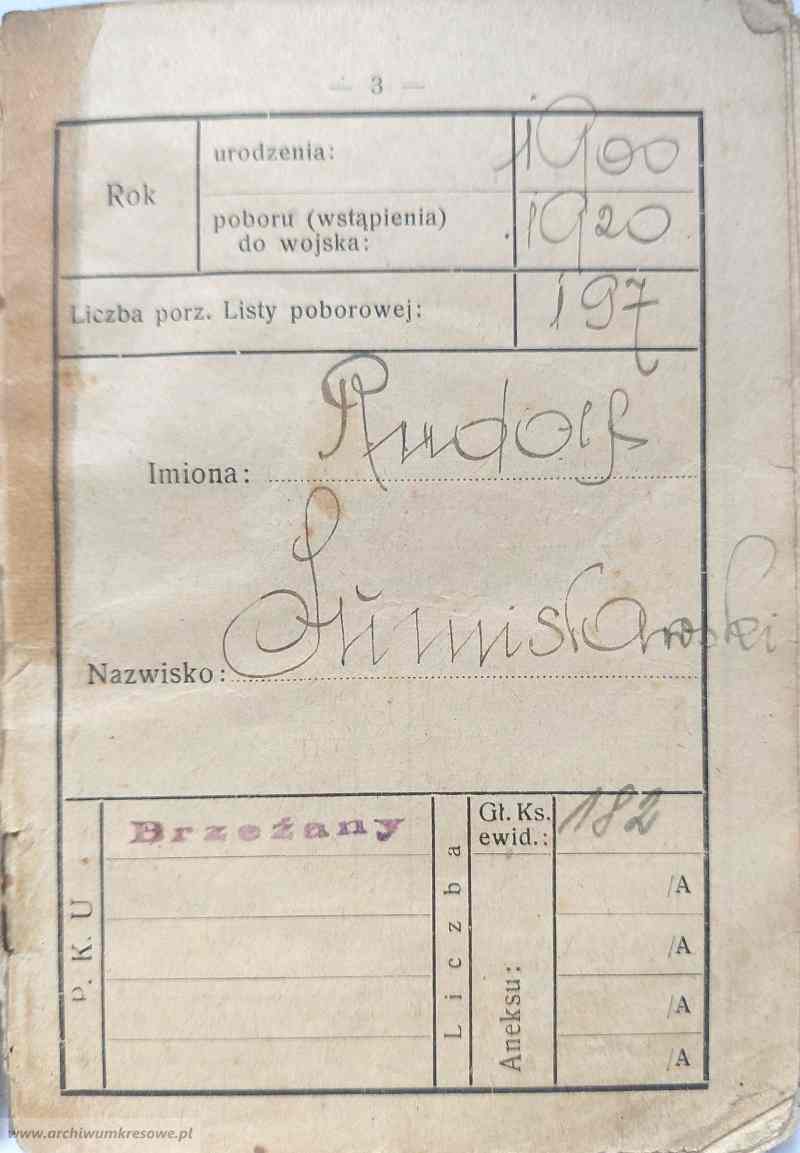 — 3 —
Rok
urodzenia: 1900
poboru (wstąpienia)
do wojska: 1920
Liczba porz. Listy poborowej: 197
Imiona: Rudolf
Nazwisko:
P. K. U
Brzeżany
Liczba
Gł. Ks.
ewid.: 182
Aneksu:
/A
/A
/A
/A
www.archiwumkresowe.pl